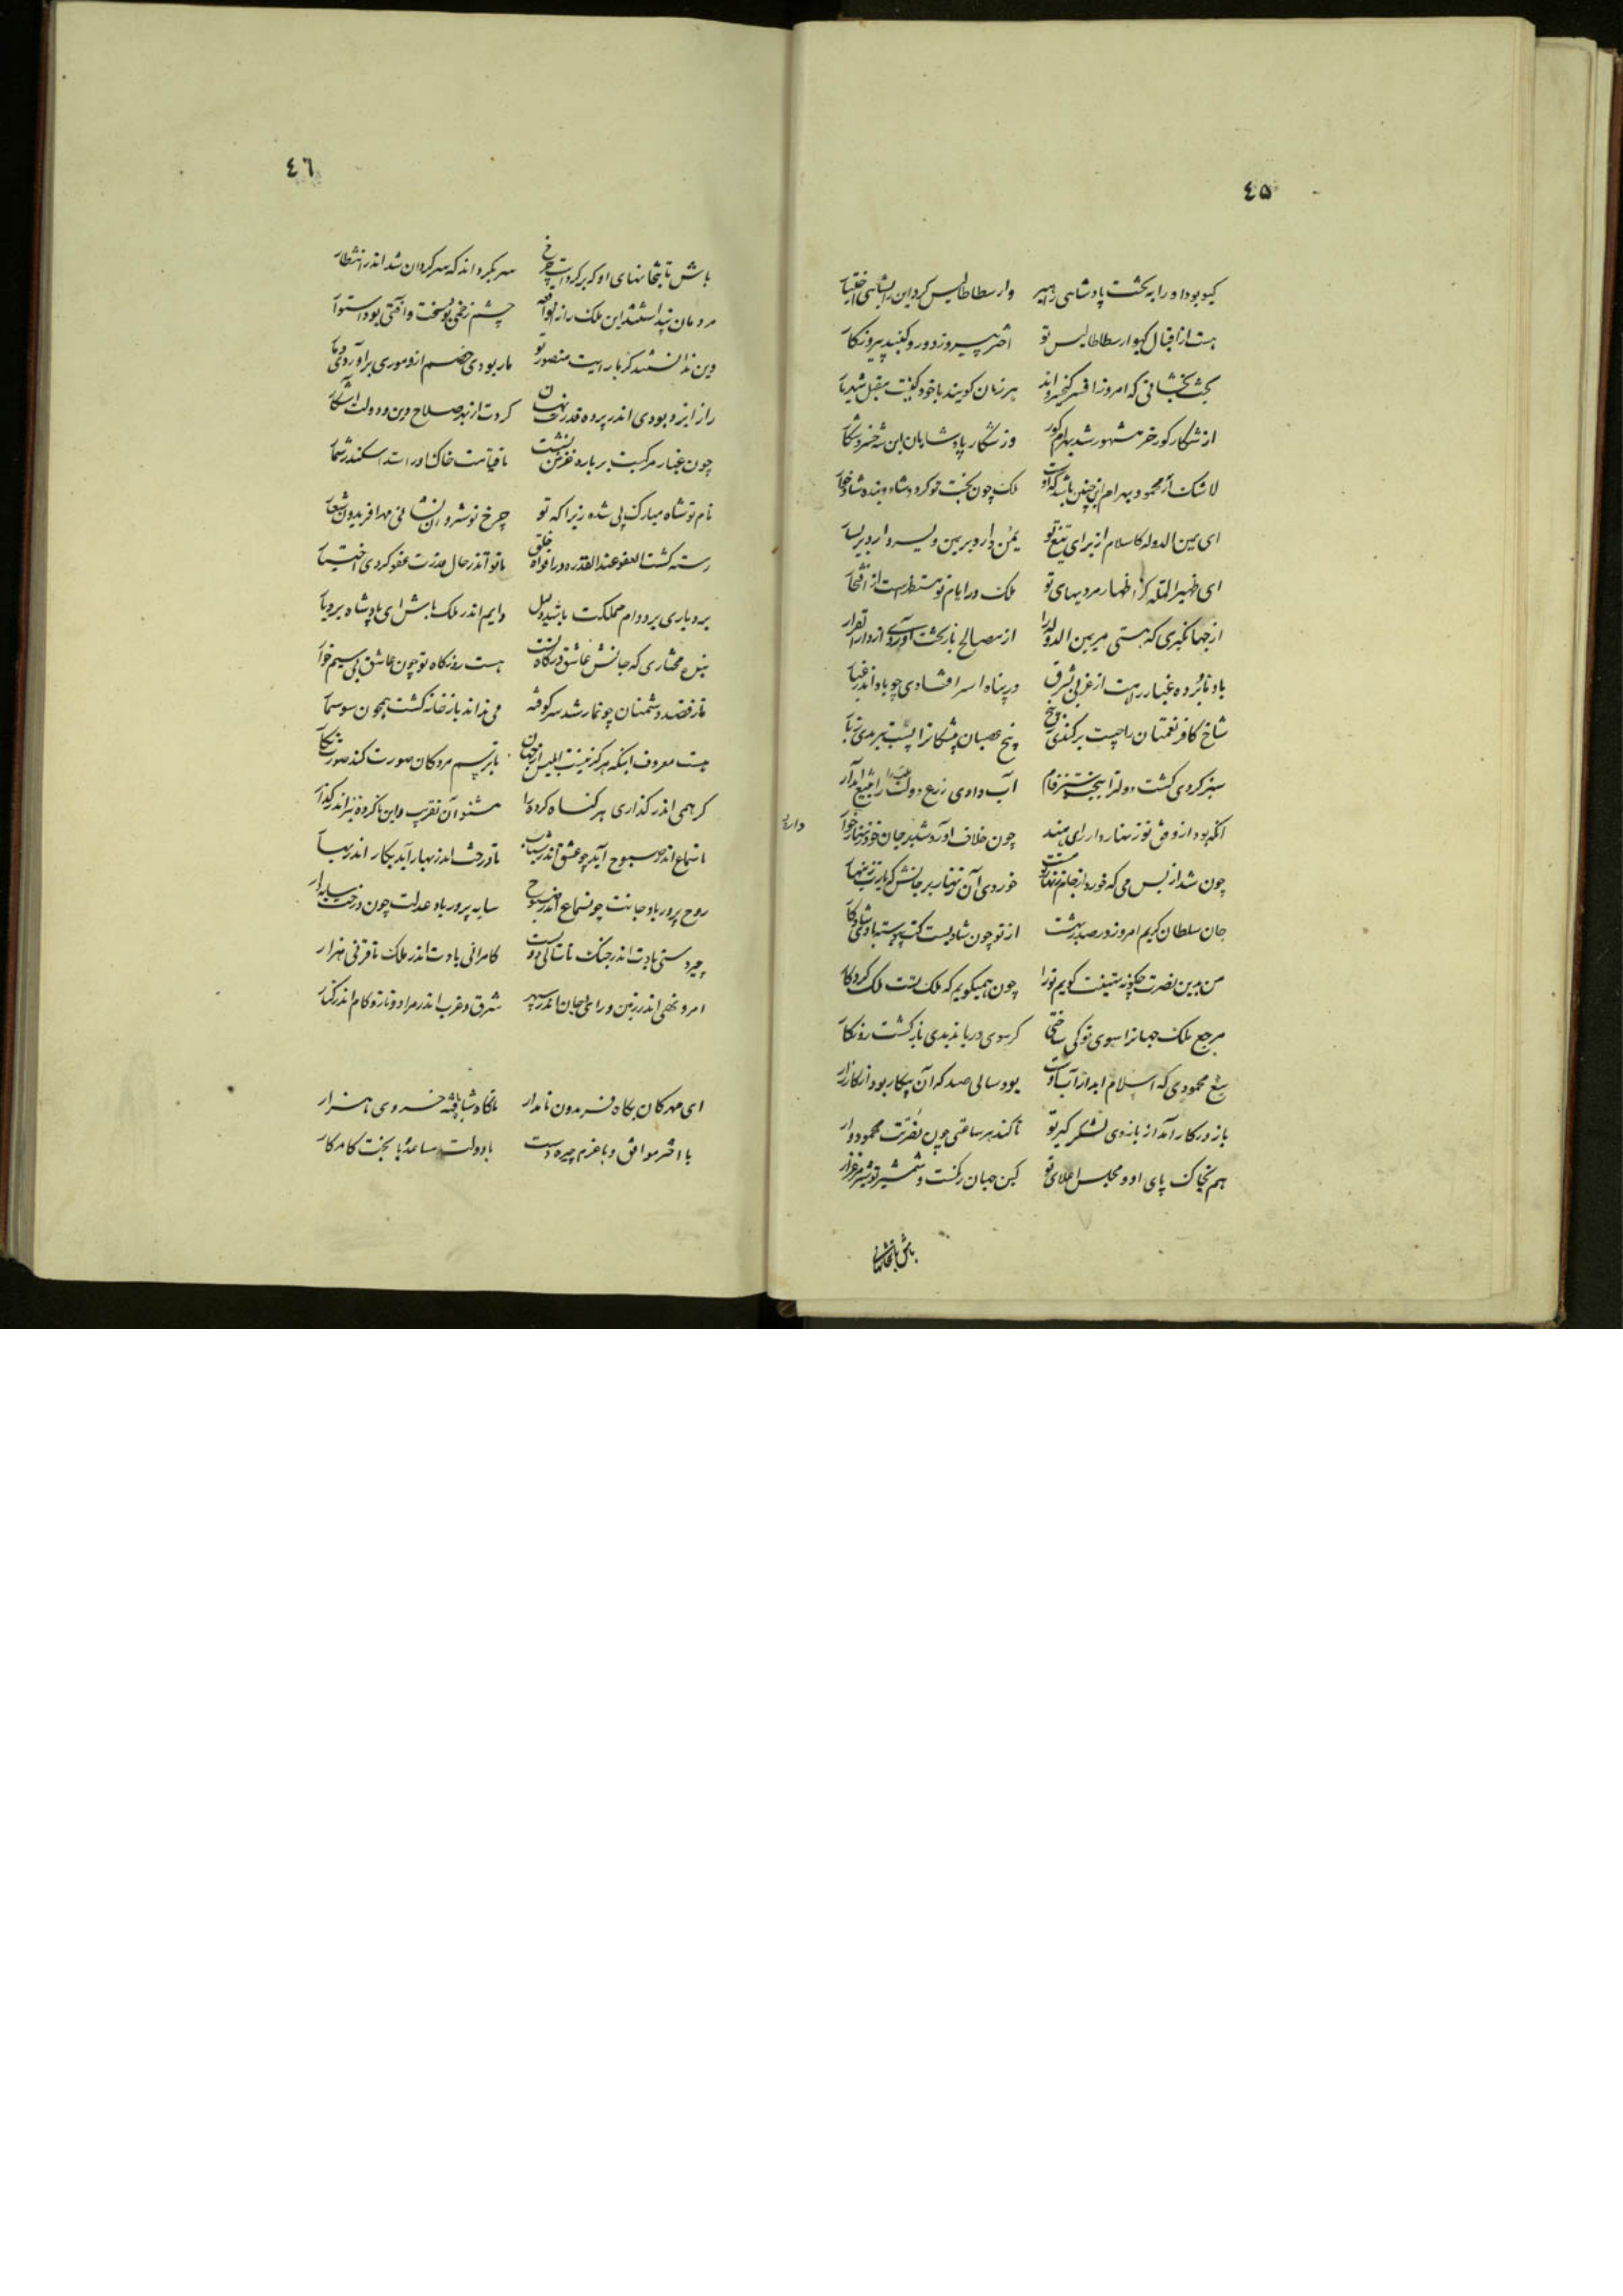 ٤٥
گیو بود او را به تخت پادشاهی راهبر وارسطاطالیس کرد این را بشاهی اختیار
هست از اقبال گیو ارسطاطالیس تو اختر پیروز دور و گنبد پیروزکار
تخت بخشانی که امروز افسر کیخسرواند هر زمان گویند با خود کینت مقبل شهریار
از شکار گور خر مشهور شد بهرام گور وز شکار پادشاهان این شه خسرو شکار
لاشک از محمود و بهرام این چنین باشد که ملک چون بخت تو کرد و شاه و بنده شاد خوار
ای یمین الدوله کاسلام از برای تیغ تو یمن دارد بر یمین و یسر دارد بر یسار
ای ظهیر المله کز اظهار مردیهای تو ملک در ایام تو مستظهر است از افتخار
از جهانگیری که هستی مر یمین الدوله را از مصالح باز تخت آوردی از دار القرار
باد نابرده غبار رهت از غربی بشرق در پناه اسر افتادی چو باد اندر غبار
شاخ کافر نعمتان را چست برکندی ز بیخ بیخ عصیان پیشگانرا پست ببریدی ز بار
سبز کردی کشت دولترا بخنجر سبز فام آب دادی زرع دولت را بتیغ آبدار
آنکه بود از وفق تو زنهاردار رای هند چون خلاف آورد شد بر جان خود زنهار خوار
دارنده
چون شد از بس می که خورد از جام زنهار خوردی آن زنهار بر جانش که یا رب زینهار
جان سلطان کریم امروز در صدر بهشت از تو چون شادیست کت پیوسته باد شادی کار
من بدین نصرت چگونه تهنیت گویم ترا چون همیگویم که ملک تست ملک کردگار
مرجع ملک جهانرا سوی تو کی ساختی گر سوی دریا بدیدی بازگشت رودبار
تیغ محمودی که اسلام ابد را آب اوست بود سالی صد که آن پیکار بود از کارزار
باز در کار آمد از بازوی لشکر گیر تو تا کند هر ساعتی چون نصرت محمود وار
هم بخاک پای او و مجلس اعلای تو کین جهان رکنت و شمشیر تو شیر مرغزار
باش تا بتخانهای
٤٦
باش تا بتخانهای او که برکرد است چرخ سر بگرداند که سرگردان شد اندر انتظار
مردمان پنداشتند این ملک را زان واقعه چشم زخمی بود سخت و آفتی بود استوار
وین ندانستند کز بار رایت منصور تو مار بودی خصم ازو موری برآوردی دمار
راز ایزد بودی اندر پرده قدرت نهان کردت از بهر صلاح دین و دولت آشکار
چون غبار مرکبت بر باره غزنین نشست تا قیامت خاک او را سد اسکندر شمار
نام تو شاه مبارک پی شده زیرا که تو چرخ نوشروان نشانی مهر افریدون شعار
رسته گشت العفو عند القدره در افواه خلق تا تو اندر حال قدرت عفو کردی اختیار
بردباری بر دوام مملکت باشد دلیل دایم اندر ملک باش ای پادشاه بردبار
بنده مختاری که جانش عاشق درگاه تست هست روزگاه تو چون عاشق بی سیم خوار
تا ز قصد دشمنان چو نمار شد سر کوفته می نداند باز خانه گشت همچون سوسمار
هست معروف اینکه هرگز نیست ابلیس از جهان تا بر رسم مردکان صورت کند صورت نگار
گر همی اندر گذاری هر گناه کرده را مشنو آن تقریب و این ناکرده نیز اندر گذار
تا سماع اندر صبوح آید چو عشق اندر شباب تا درخت اندر بهار آید بکار اندر بهار
روح پرور باد جانت چون سماع اندر صبوح سایه پرور باد عدلت چون درخت سایه دار
چیردستی بادت اندر جنگ تا سالی دویست کامرانی بادت اندر ملک تا قرنی هزار
امر و نهی اندر زمین و رای اجان اندر سپهر شرق و غرب اندر مراد و ناز و کام اندر کنار
ای مهرکان بگاه فریدون نامدار ناگاه شاه یافته خسروی هزار
با اختر موافق و با عزم چیره دست با دولت مساعد و با بخت کامکار